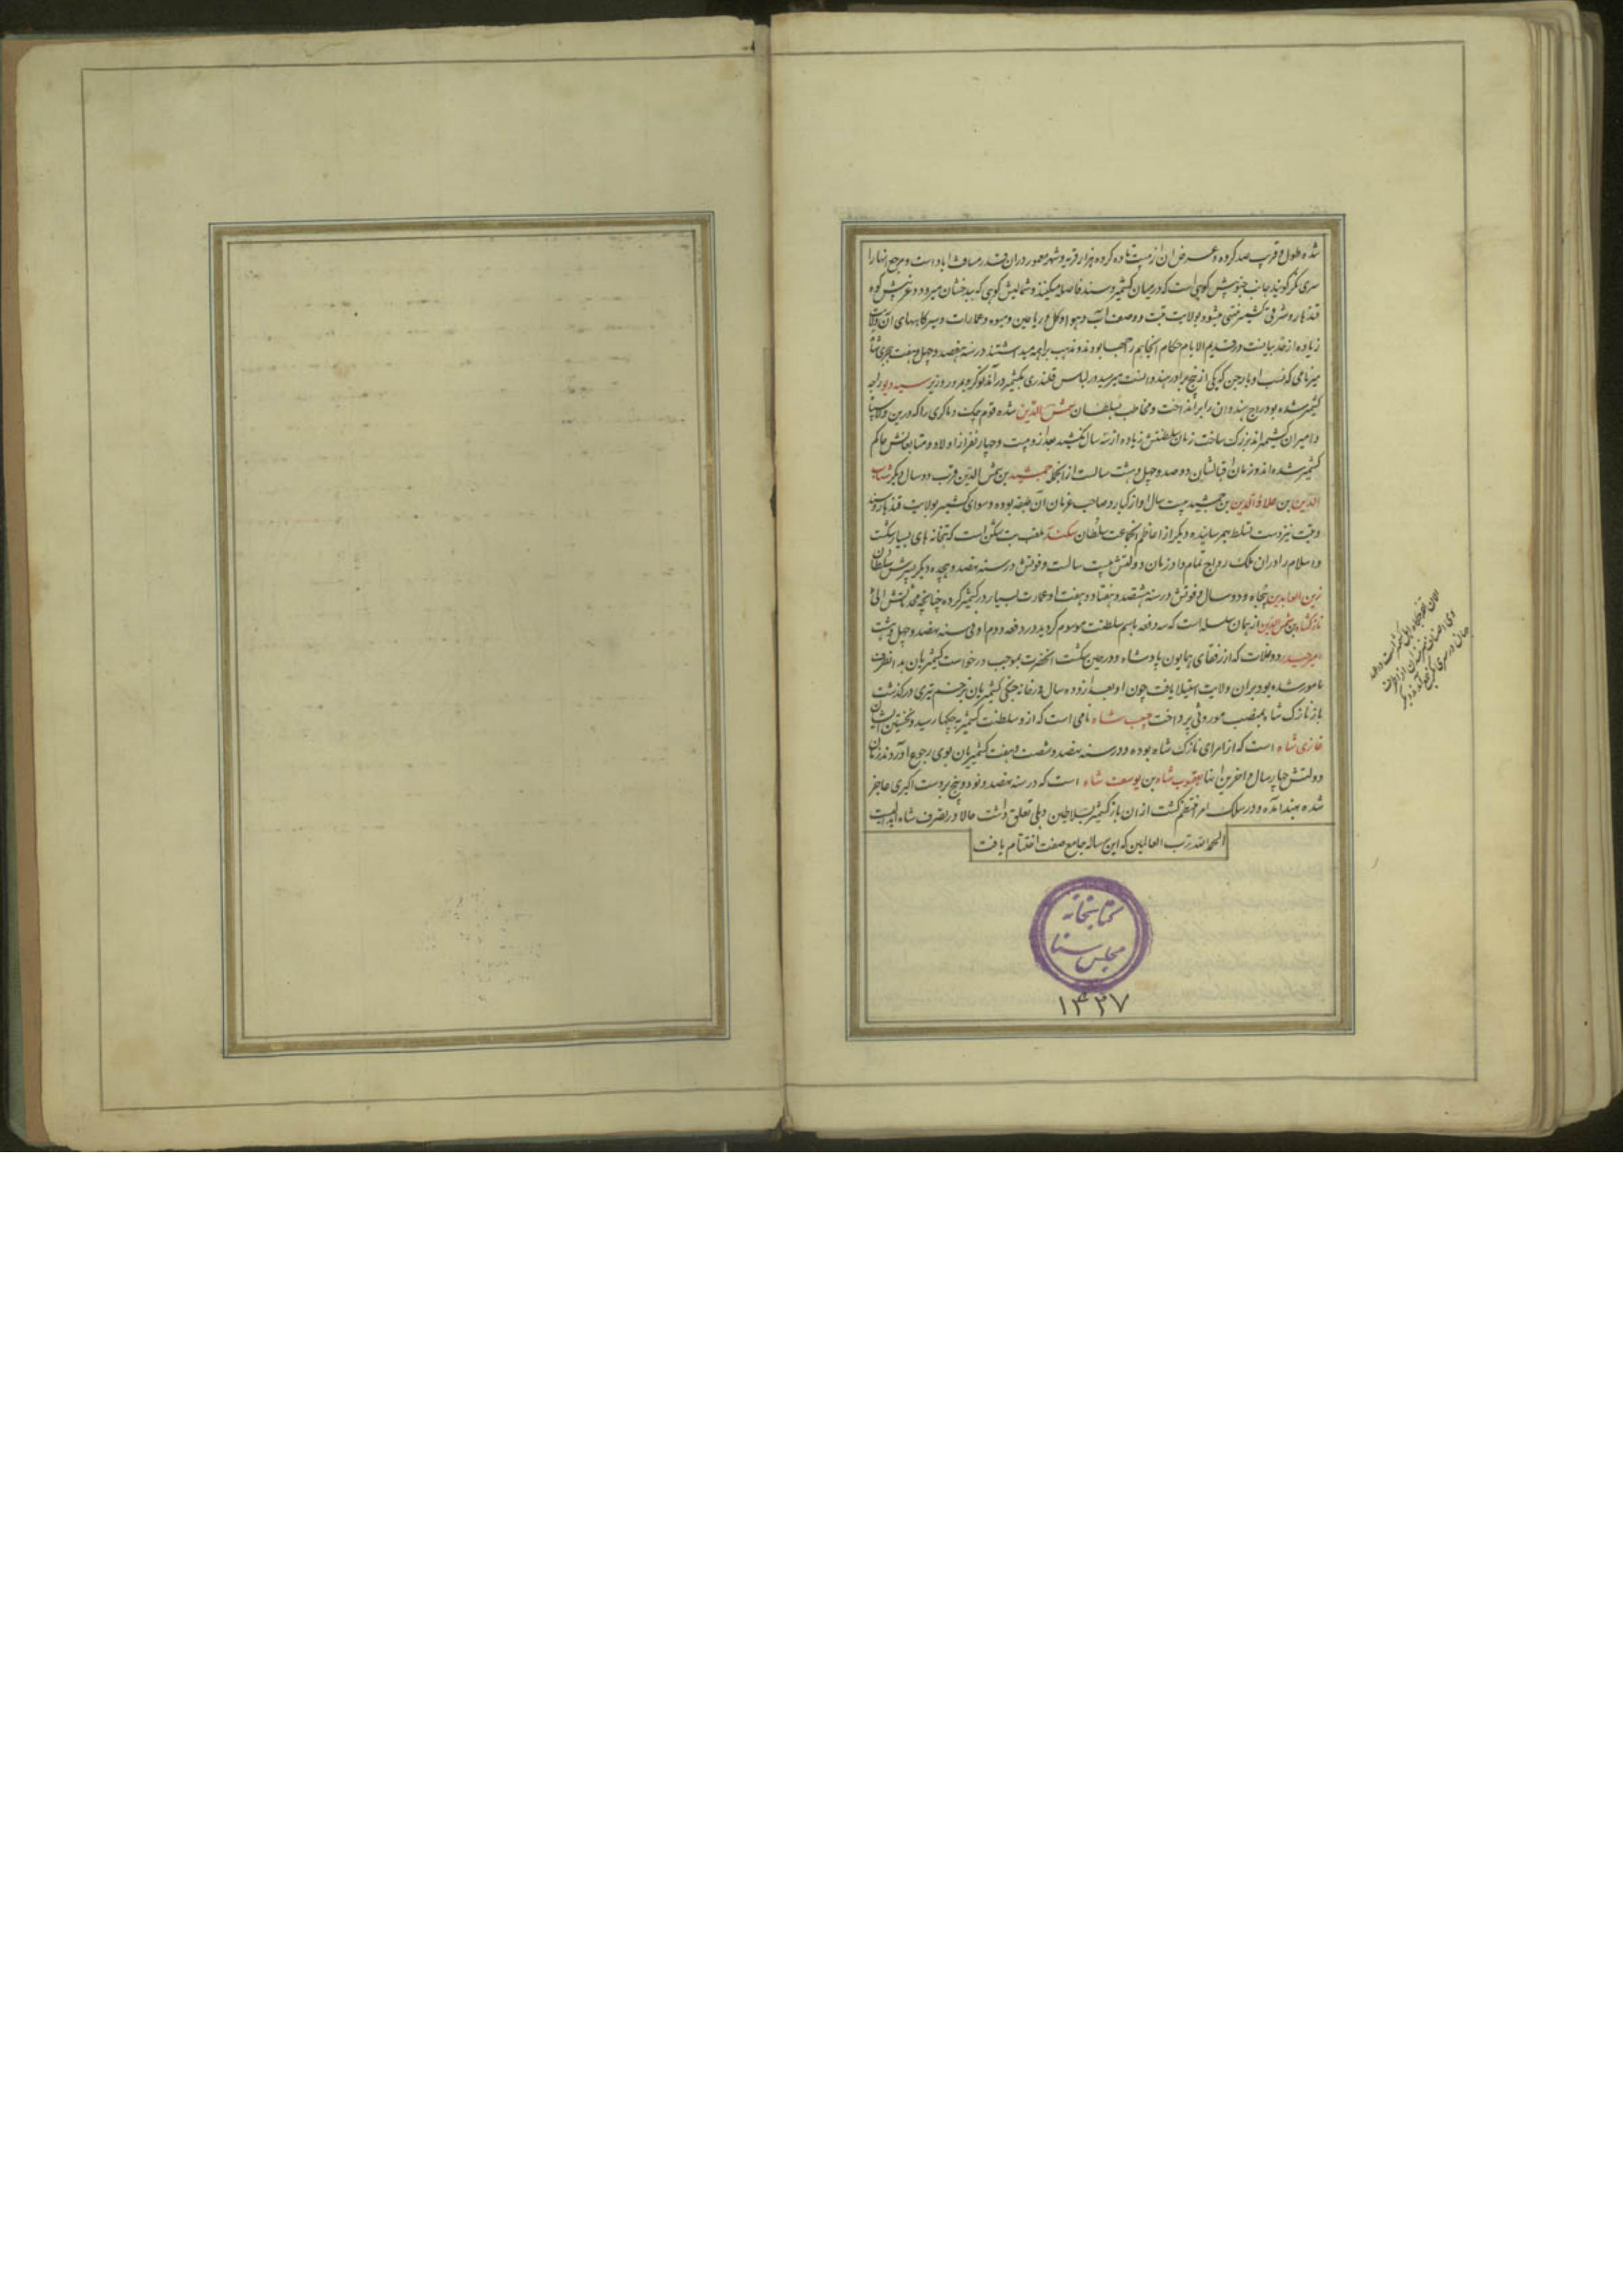 شده طول و قرب صد کروه و عرض ان از بیست تا ده کروه هزار قریه و شهر معمور دران قدر مسافت اباد است و مرجع انها را
سری نگر گویند جانب جنوبش کوهی است که درمیان کشمیر و سند فاصله میکند و شمالیش کوهی که ببدخشان میرود و غربیش کوه
قندهار و شرقی کشمیر منتهی میشود بولایت تبت و وصف آب و هوا و گل و ریاحین و میوه و عمارات و سیرگاههای آن ولایت
زیاده از حد بیانست در قدیم الایام حکام انجا هم راجها بودند و مذهب براهمه میداشتند در سنه هفصد و چهل و هفت هجری شاه
میرنامی که نسب او بارجن که یکی از پنج برادر هندو انست میرسید در لباس قلندری بکشمیر در آمد نوکر و بمرور وزیر سیه دیو راجه
کشمیر شده بود راج هندوان را برانداخت و مخاطب بسلطان شمس الدین شده قوم چک و ماکری را که درین ولایت
و امیران کشمیراند بزرک ساخت زمان سلطنتش زیاده از سه سال نکشید بعد ازو بیست و چهار نفر از اولاد و متابعانش حاکم
کشمیر شده اند و زمان اقبالشان دوصد و چهل و هشت سالست از انجمله جمشید بن شمس الدین قرب دو سال دیگر شهاب
الدین بن علاء الدین بن جمشید بیست سال او از کبار و صاحب عزمان آن طبقه بوده و سوای کشمیر بولایت قندهار و سند
و تبت نیز دست تسلط بهم رسانیده دیگر از اعاظم انجماعت سلطان سکندر ملقب بت شکن است که بتخانه های بسیار شکست
و اسلام را دران ملک رواج تمام داد زمان دولتش بیست سالست و فوتش در سنه هصد و هجده دیگر پسرش سلطان
زین العابدین پنجاه و دو سال و فوتش در سنه هشتصد و هفتاد و هفت او عمارت بسیار در کشمیر کرده چنانچه
نازکشاه بن شمس الدین از همان سلسله است که سه دفعه باسم سلطنت موسوم گردید در دفعه دوم او فی سنه نهصد و چهل و هشت
میرحیدر دوغلات که از رفقای همایون پادشاه و در حین شکست انحضرت بموجب درخواست کشمیریان بدانطرف
مامور شده بود بران ولایت استیلا یافت چون او بعد از ده سال در خانه جنگی کشمیریان بزخم تیری درگذشت
باز نازک شاه بمنصب موروثی پرداخت حبیب شاه نامی است که ازو سلطنت کشمیر به چکها رسید و نخستین ایشان
غازی شاه است که از امرای نازک شاه بوده و در سنه نهصد و شصت و هفت کشمیریان بوی رجوع آوردند زمان
دولتش چهار سال و اخرین انها یعقوب شاه بن یوسف شاه است که در سنه نهصد و نود و پنج بر دست اکبری عاجز
شده بهند امده و در سلک امرا منتظم گشت از ان باز کشمیر بسلاطین دهلی تعلق داشت حالا در تصرف شاه ابدالیست
الحمد لله رب العالمین که این رساله جامع صفت اختتام یافت
کتابخانه
مجلس سنا
۱۴۲۷